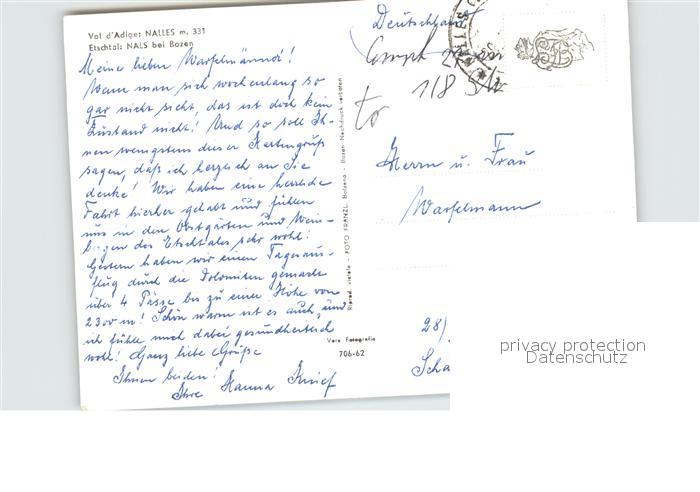 Val d'Adige: NALLES m. 331
Etschtal: NALS bei Bozen
Meine lieben Warfelmänner!
Wenn man sich wochenlang so
gar nicht sieht, das ist doch kein
Zustand nicht! Und so soll Ih-
nen wenigstens dieser Kartengruß
sagen, daß ich herzlich an Sie
denke! Wir haben eine herrliche
Fahrt hierher gehabt und fühlen
uns in den Obstgärten und Wein-
bergen des Etschtales sehr wohl!
Gestern haben wir einen Tagesaus-
flug durch die Dolomiten gemacht
über 4 Pässe bis zu einer Höhe von
2300 m! Schön warm ist es auch, und
ich fühle mich dabei gesundheitlich
wohl! Ganz liebe Grüße
Ihnen beiden!
Ihre Hanna
Riprod. vietata - FOTO FRANZL, Bolzano - Bozen Nachdruck verboten
Vera Fotografia
706-62
Deutschland
118
to
Herrn u. Frau
Warfelmann
28)
Scha
privacy protection
Datenschutz